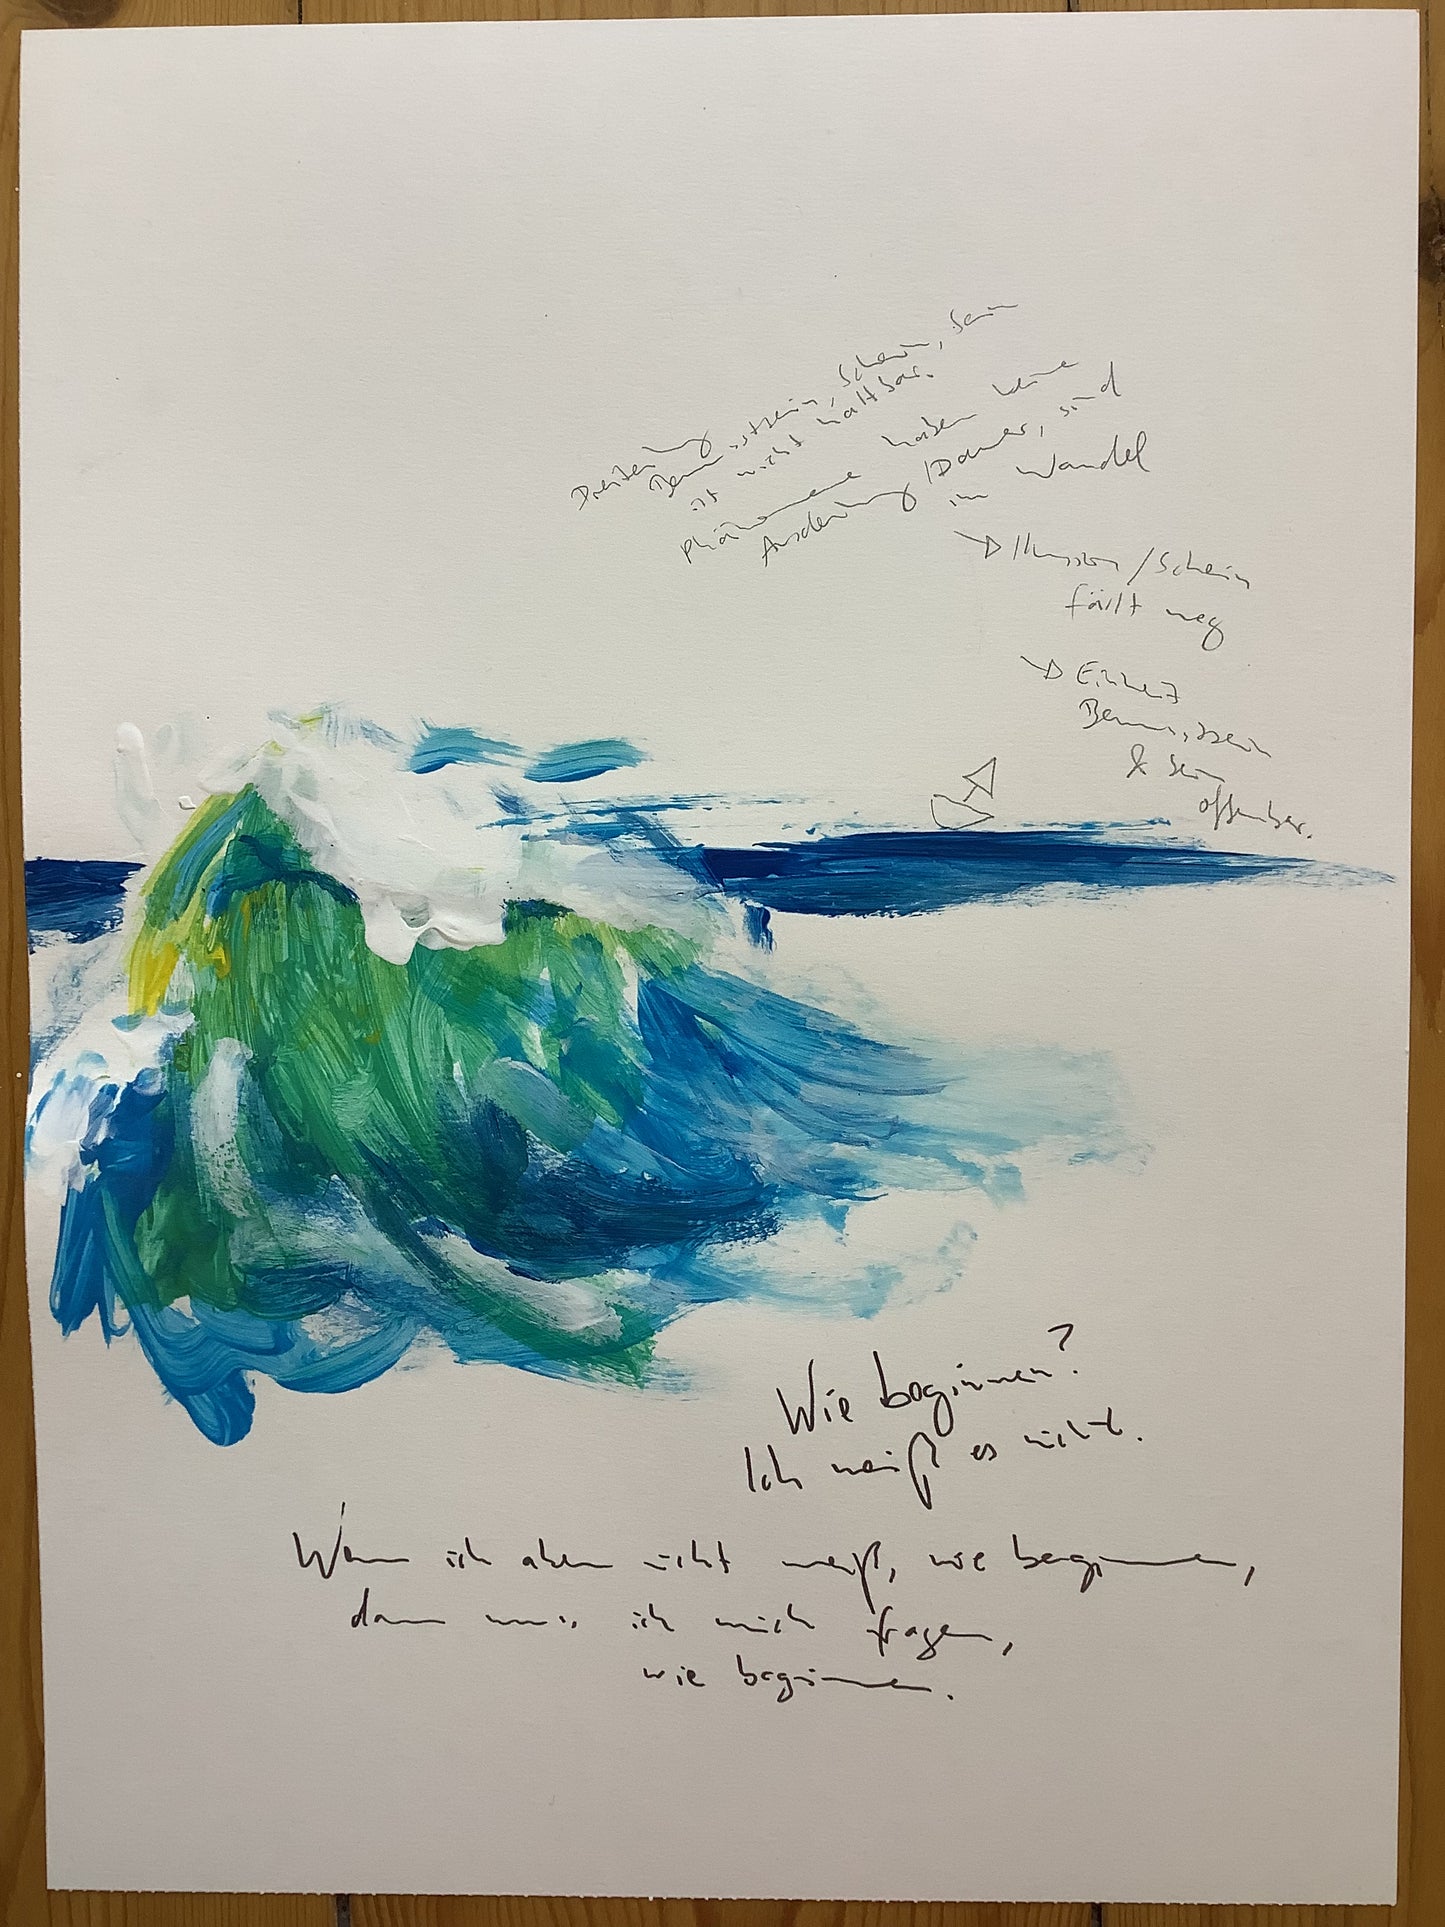 Dreiteilung
Bewusstsein, Schein, Sein
ist nicht haltbar.
Phänomene haben keine
Ausdehnung / Dauer, sind
im Wandel
→ Illusion / Schein
fällt weg
→ Einheit
Bewusstsein
& Sein
offenbar.
Wie beginnen?
Ich weiß es nicht.
Wenn ich aber nicht weiß, wie beginnen,
dann muss ich mich fragen,
wie beginnen.